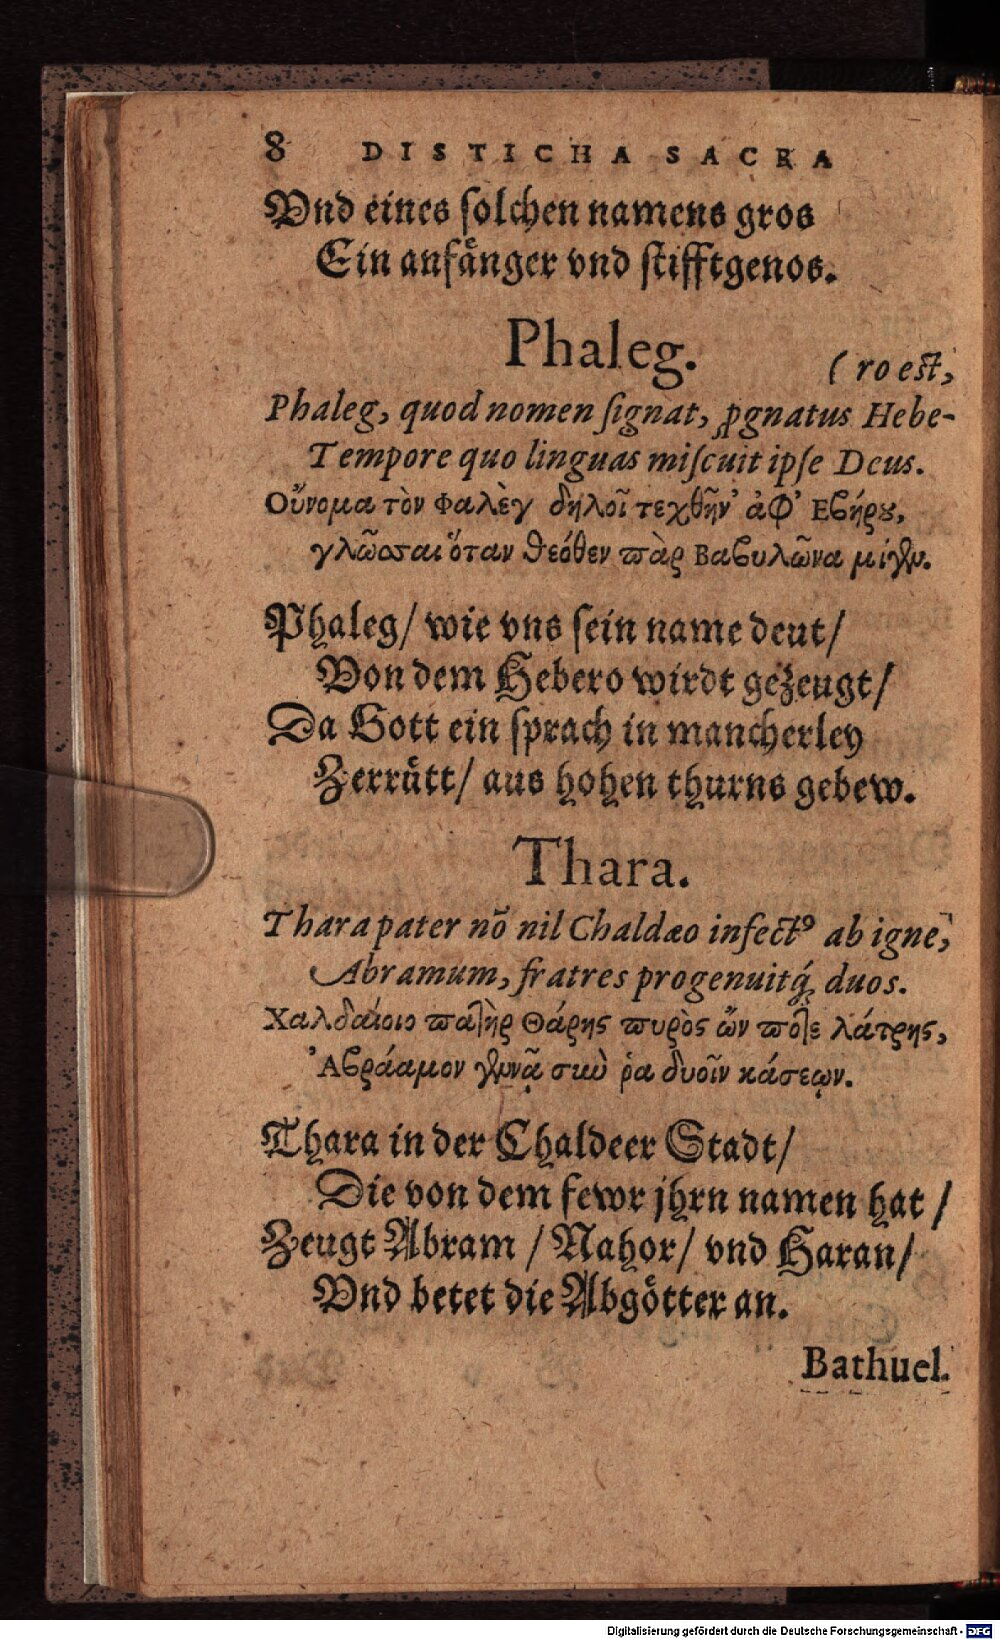 8 DISTICHA SACRA
Vnd eines ſolchen namens gros
Ein anfaͤnger vnd ſtifftgenos.
Phaleg.
(ro eſt,
Phaleg, quod nomen ſignat, ꝓgnatus Hebe-
Tempore quo linguas miſcuit ipſe Deus.
Οὔνομα τὸν Φαλὲγ δηλοῖ τεχθῆν' ἀφ' Εβήρȣ,
γλῶσσαι ὅταν θεόθεν πὰρ Βαβυλῶνα μίγεν.
Phaleg/ wie vns ſein name deut/
Von dem Hebero wirdt gezeugt/
Da Gott ein ſprach in mancherley
Zerruͤtt/ aus hohen thurns gebew.
Thara.
Thara pater nō nil Chaldæo infectꝰ ab igne,
Abramum, fratres progenuitq́; duos.
Χαλδαίοιο πατὴρ Θάρης πυρὸς ὢν ποτε λάτρης,
Ἀβράαμον γεννᾷ σὺν ῥα δυοῖν κάσεων.
Thara in der Chaldeer Stadt/
Die von dem fewr jhrn namen hat/
Zeugt Abram / Nahor/ vnd Haran/
Vnd betet die Abgoͤtter an.
Bathuel.
Digitalisierung gefördert durch die Deutsche Forschungsgemeinschaft - DFG